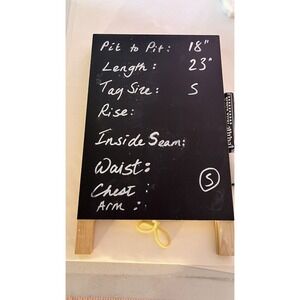 Pit to Pit: 18"
Length: 23"
Tag Size: S
Rise:
Inside Seam:
Waist:
Chest:
S
ARM: